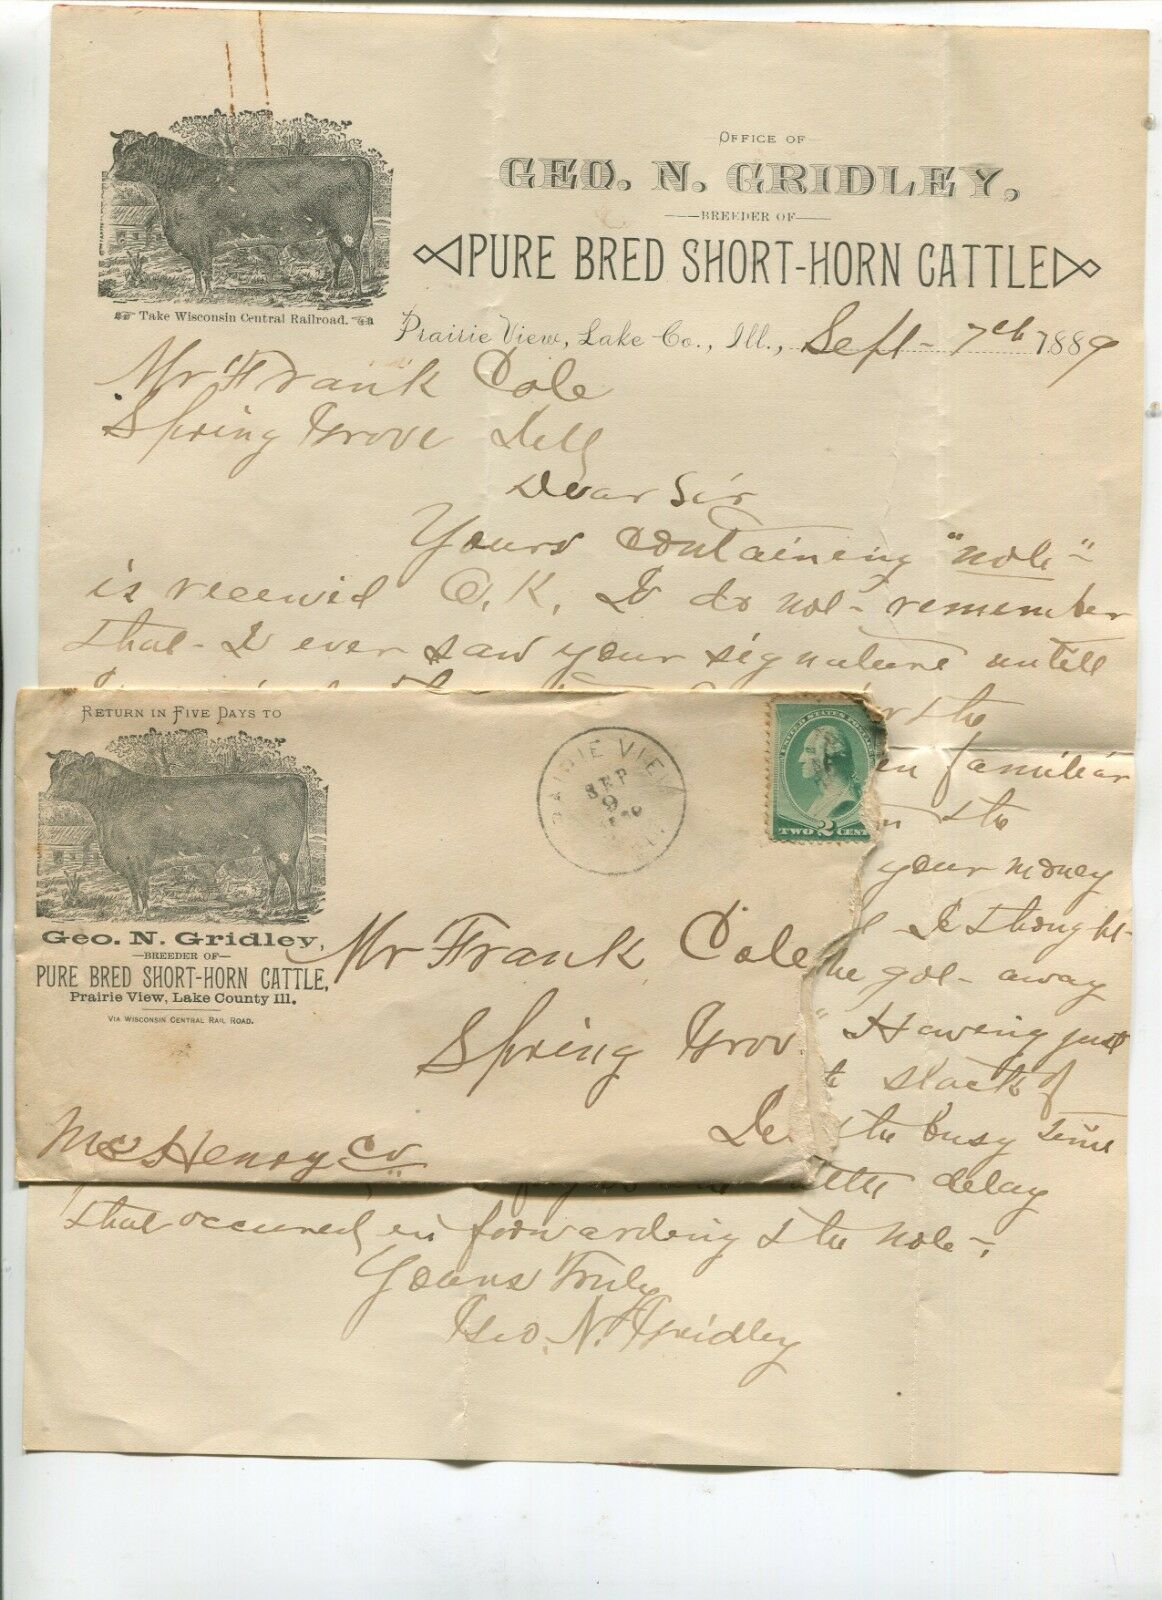 OFFICE OF
GEO. N. GRIDLEY,
BREEDER OF
PURE BRED SHORT-HORN CATTLE
Take Wisconsin Central Railroad.
Prairie View, Lake Co., Ill., Sept- 7th 1889
Mr Frank Cole
Spring Grove Ill
Dear Sir
Yours containing "note"
is received O.K. I do not remember
that I ever saw your signature untill
the
familiar
the
your money
I thought
got away
Haweing just
stack of
the busy time
delay
that occured in forwarding the note.
Yours Truly
Geo. N. Gridley
RETURN IN FIVE DAYS TO
Geo. N. Gridley,
BREEDER OF
PURE BRED SHORT-HORN CATTLE,
Prairie View, Lake County Ill.
VIA WISCONSIN CENTRAL RAIL ROAD.
PRAIRIE VIEW
SEP
9
UNITED STATES POSTAGE
TWO 2 CENT
Mr Frank Cole
Spring Grov
McHenry Co